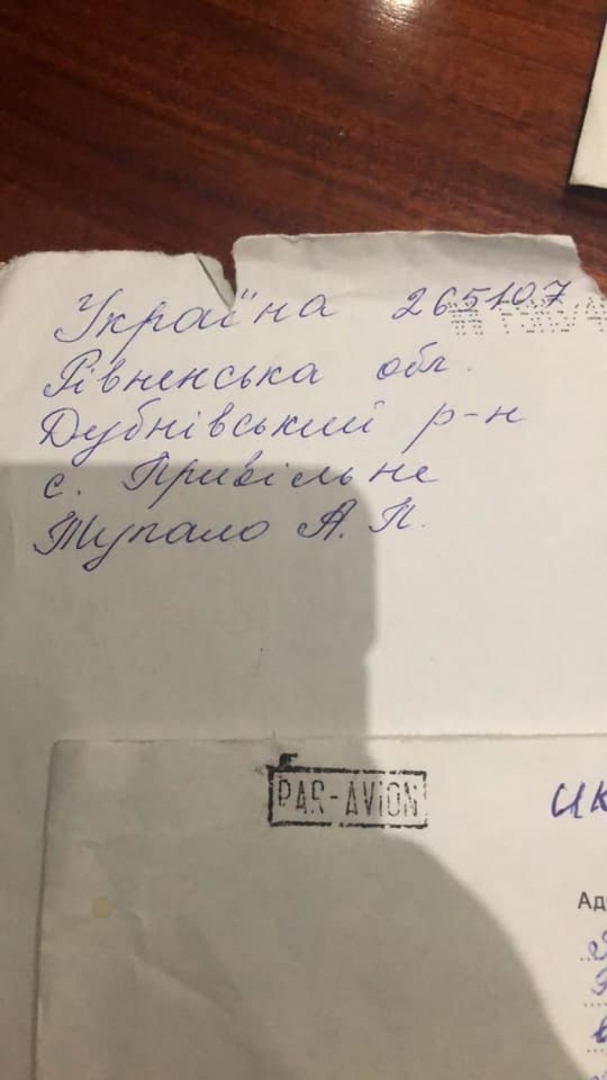 Україна 265107
Рівненська обл.
Дубнівський р-н
с. Привільне
Тупало А. П.
PAR-AVION